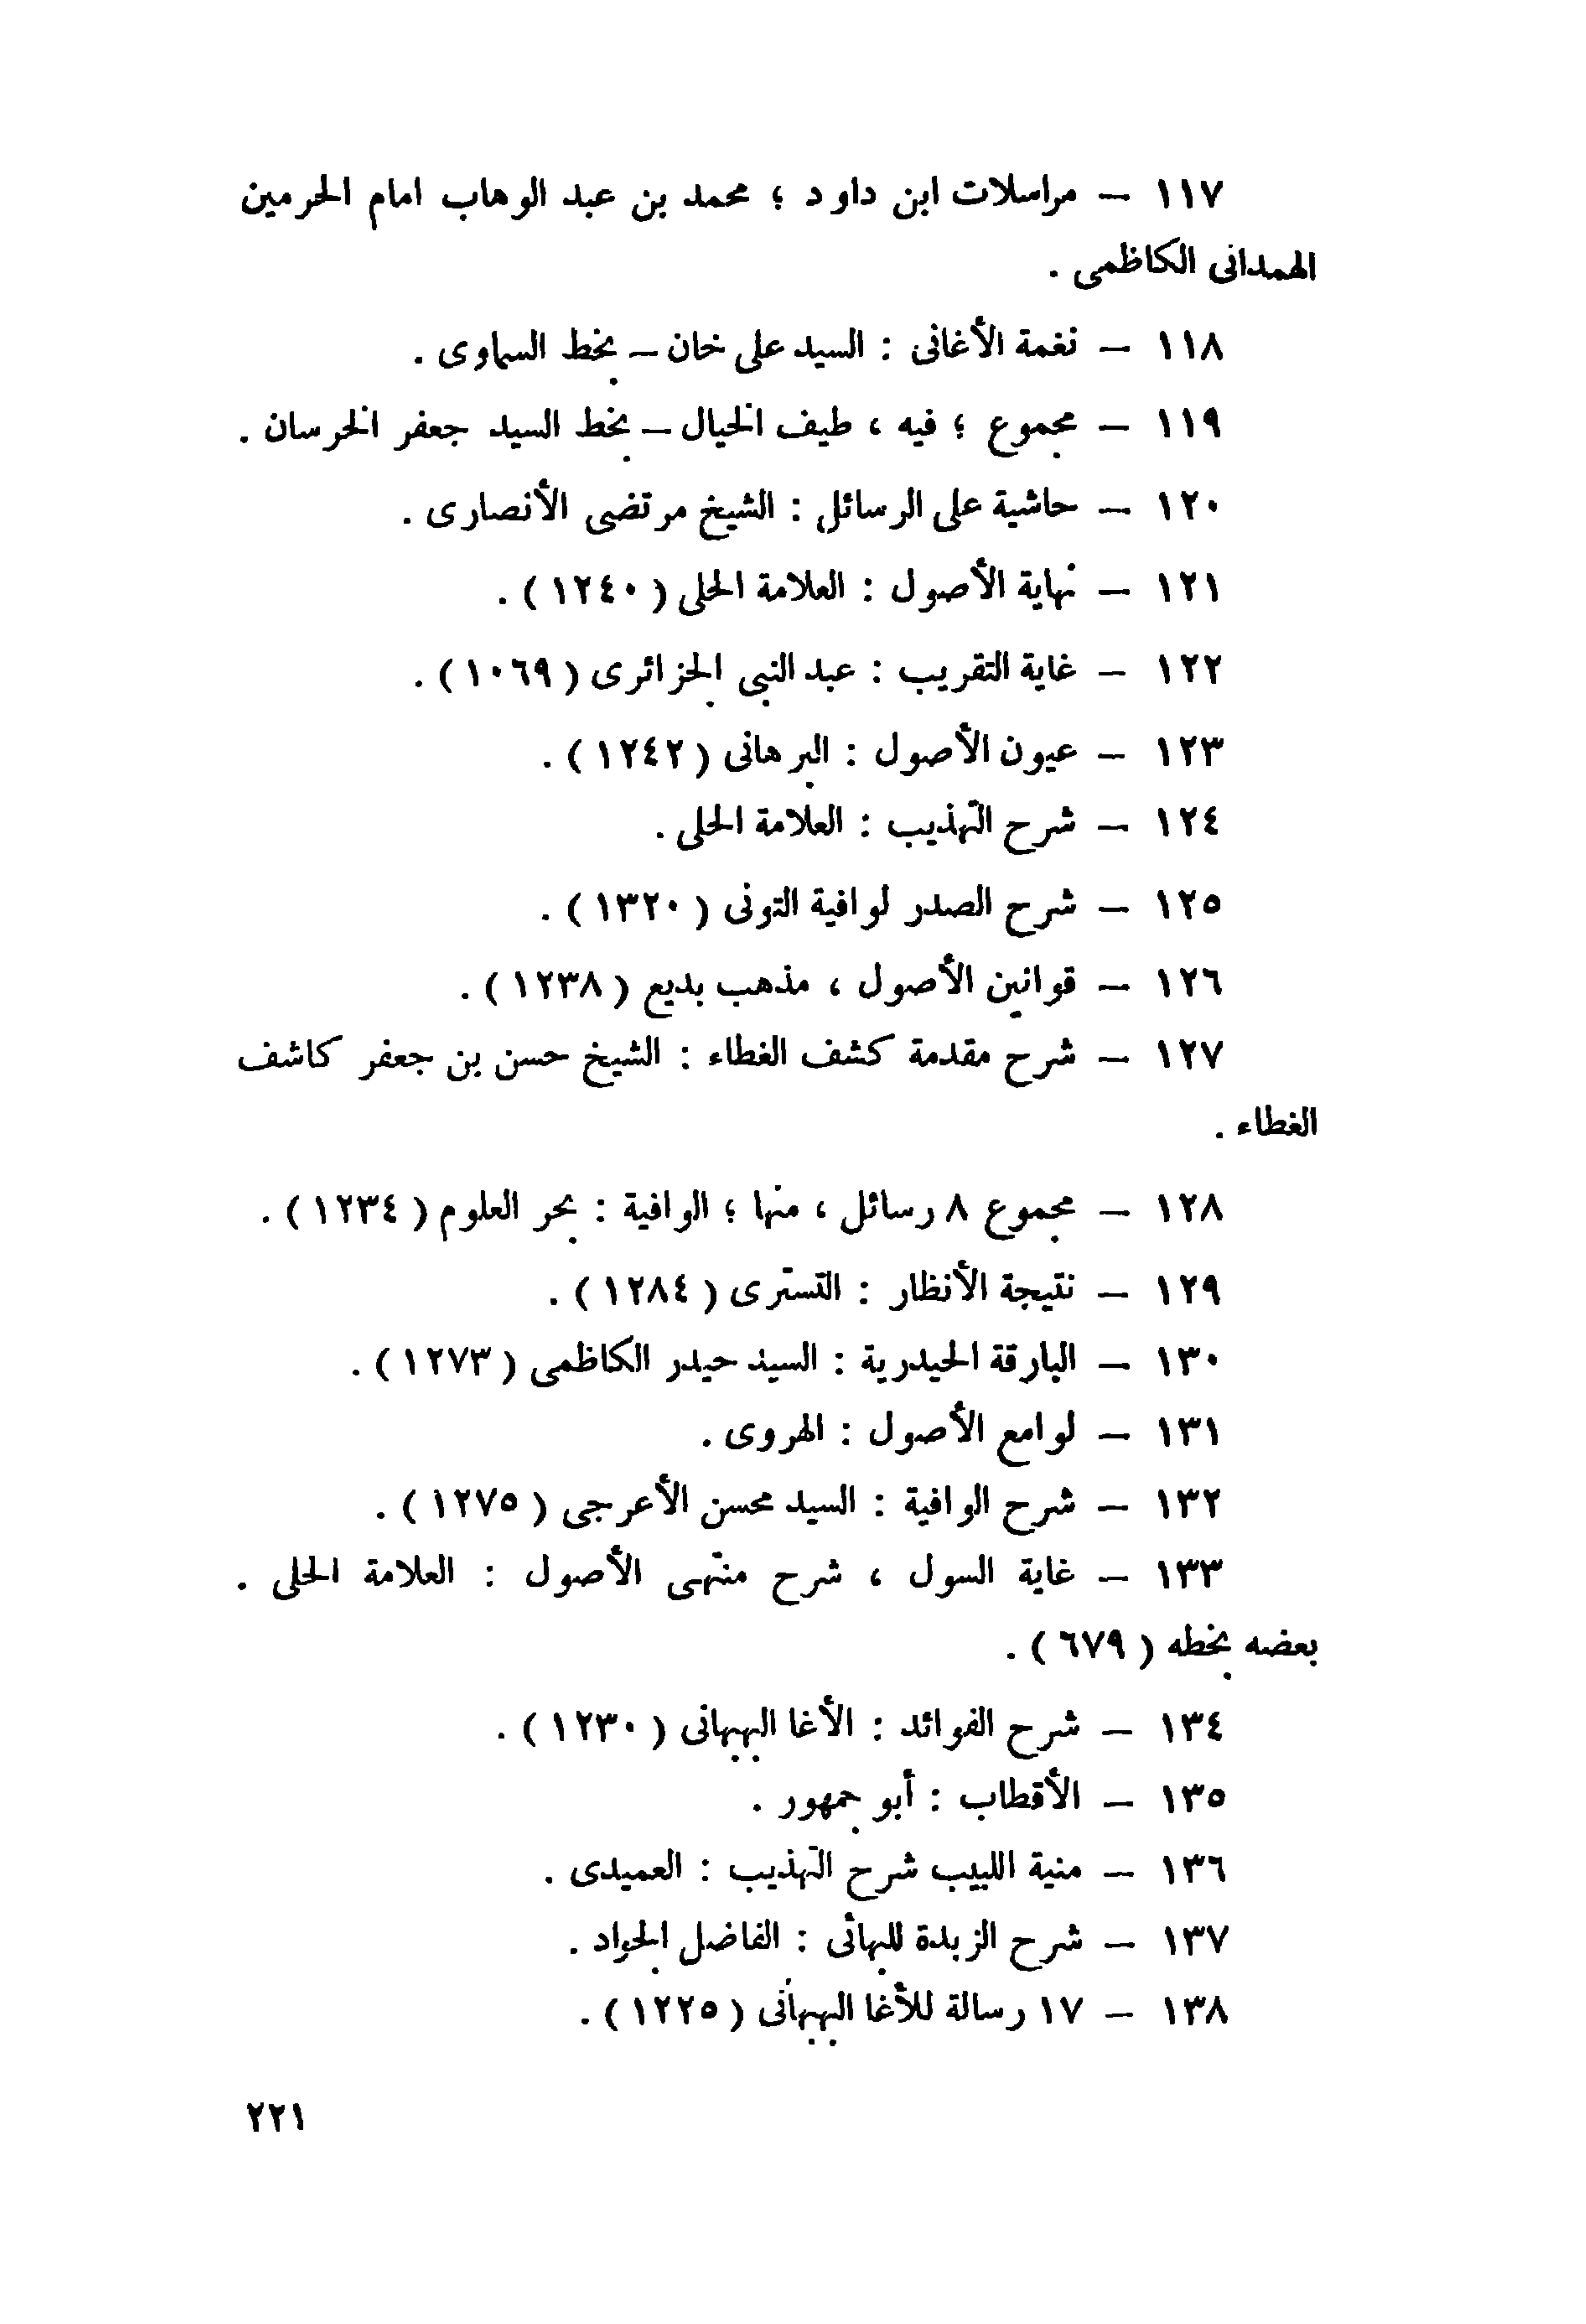 ١١٧ – مراسلات ابن داود ؛ محمد بن عبد الوهاب امام الحرمين
الهمدانى الكاظمى .
١١٨ – نغمة الأغانى : السيد على خان – بخط السماوى .
١١٩ – مجموع ؛ فيه ، طيف الخيال – بخط السيد جعفر الخرسان .
١٢٠ – حاشية على الرسائل : الشيخ مرتضى الأنصارى .
١٢١ – نهاية الأصول : العلامة الحلى ( ١٢٤٠ ) .
١٢٢ – غاية التقريب : عبد النبى الجزائرى ( ١٠٦٩ ) .
١٢٣ – عيون الأصول : البرهانى ( ١٢٤٢ ) .
١٢٤ – شرح التهذيب : العلامة الحلى .
١٢٥ – شرح الصدر لوافية التونى ( ١٣٢٠ ) .
١٢٦ – قوانين الأصول ، مذهب بديع ( ١٢٣٨ ) .
١٢٧ – شرح مقدمة كشف الغطاء : الشيخ حسن بن جعفر كاشف
الغطاء .
١٢٨ – مجموع ٨ رسائل ، منها ؛ الوافية : بحر العلوم ( ١٢٣٤ ) .
١٢٩ – نتيجة الأنظار : التسترى ( ١٢٨٤ ) .
١٣٠ – البارقة الحيدرية : السيد حيدر الكاظمى ( ١٢٧٣ ) .
١٣١ – لوامع الأصول : الهروى .
١٣٢ – شرح الوافية : السيد محسن الأعرجى ( ١٢٧٥ ) .
١٣٣ – غاية السول ، شرح منتهى الأصول : العلامة الحلى .
بعضه بخطه ( ٦٧٩ ) .
١٣٤ – شرح الفوائد : الأغا البهبهانى ( ١٢٣٠ ) .
١٣٥ – الأقطاب : أبو جمهور .
١٣٦ – منية اللبيب شرح التهذيب : العميدى .
١٣٧ – شرح الزبدة للبهائى : الفاضل الجواد .
١٣٨ – ١٧ رسالة للأغا البهبهانى ( ١٢٢٥ ) .
٢٢١